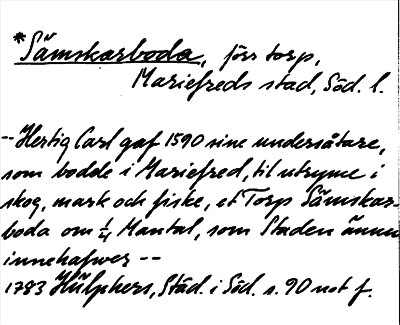 *Sämskarboda, förr torp,
Mariefreds stad, Söd. l.
--Hertig Carl gaf 1590 sine undersåtare,
som bodde i Mariefred, til utryme i
skog, mark och fiske, et Torp Sämskar-
boda om ¼ Mantal, som Staden ännu
innehafwer --
1783 Hülphers, Städ. i Söd. s. 90 not f.